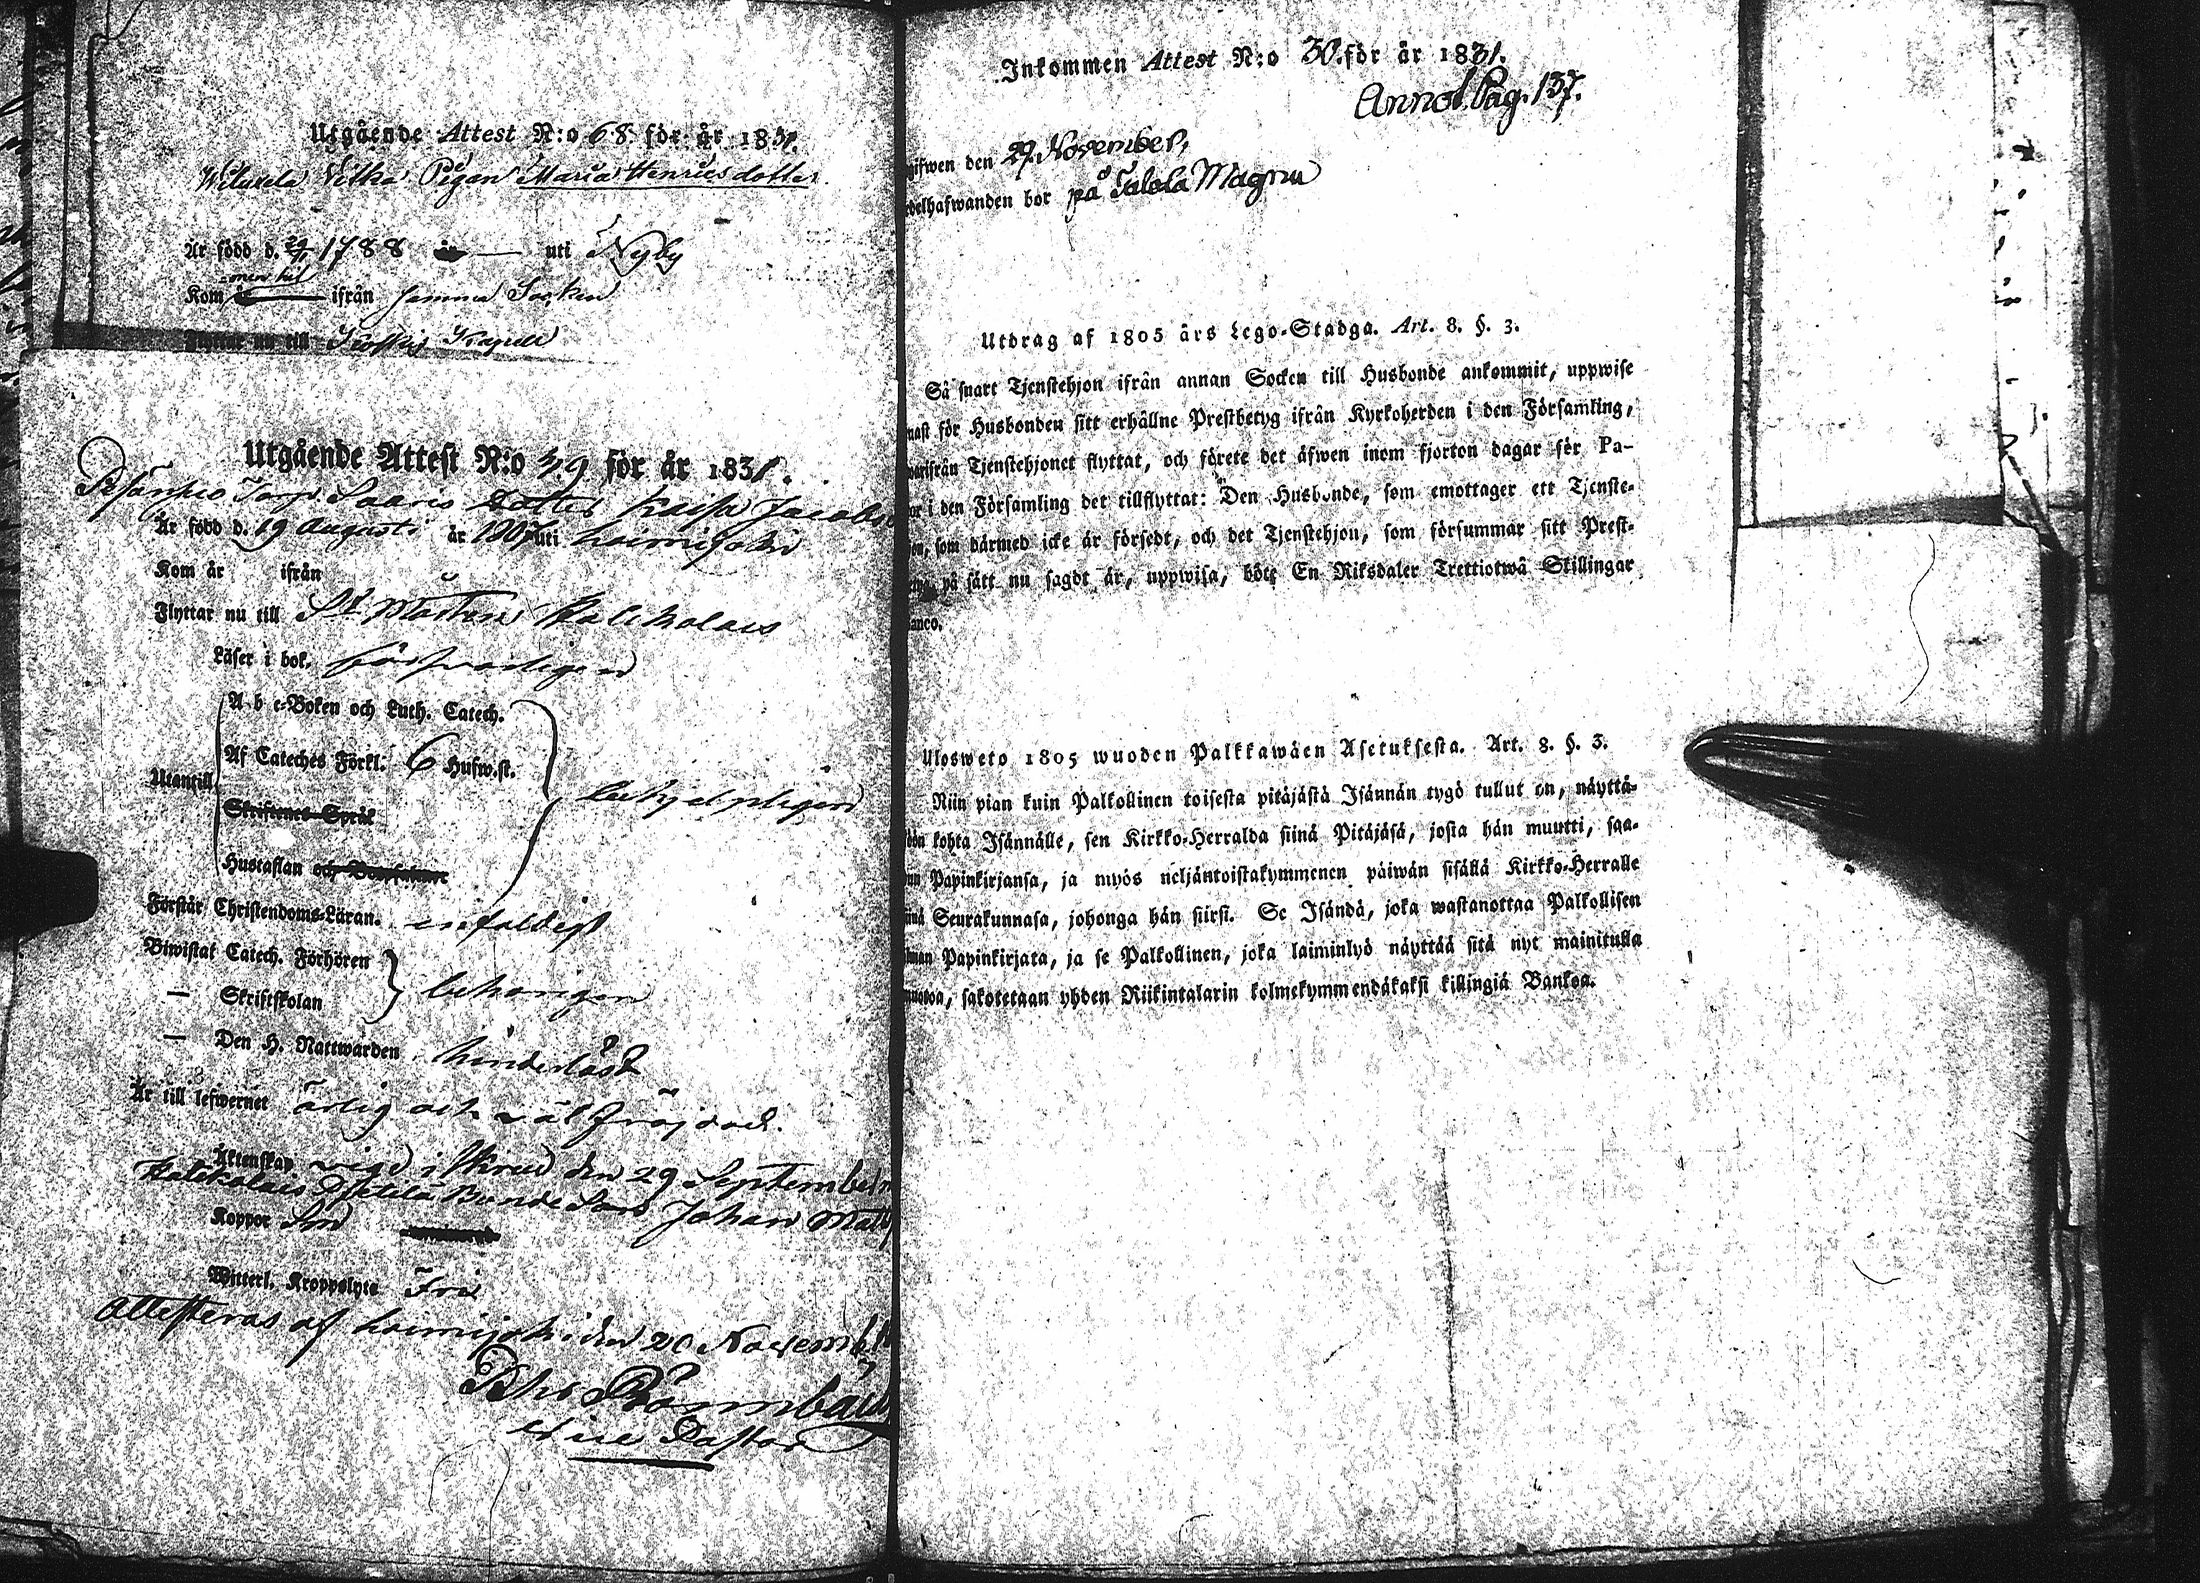 Utgående Attest N:o 68. för år 1831.
Pigan Maria Henricsdotter
Är född d. 29 1788 uti Nyby
Kom men hit ifrån samma Socken
Flyttar nu till Kapell
Utgående Attest N:o 39 för år 1831.
Torp. Saaris Dotter Kaisa Jacobs
Är född d. 19 Augusti år 1807 uti Loimijoki
Kom år ifrån
Flyttar nu till St Mårtens Kalikolais
Läser i bok. försvarligen
Utantill
A b c-Boken och Luth. Catech.
Af Cateches Förkl. 6 Hufw.st.
Skriftenes Språk
Hustaflan och
behjelpligen
Förstår Christendoms-Läran. enfaldigt
Biwistat Catech. Förhören
— Skriftskolan
behörigen
— Den H. Nattwarden hinderlöst
Är till lefwernet ärlig och väl frejdad.
Äktenskap vigd i Skrud den 29 September
Kalikolais Bonde Son Johan Matts
Koppor
Witterl. Kroppslyte Fri
Attesteras af Loimijoki den 20 November
Vice Pastor
Inkommen Attest N:o 30. för år 1831.
Annot. Pag. 137.
gifwen den 29. November,
edelhafwanden bor på Talola Magnu
Utdrag af 1805 års Lego-Stadga. Art. 8. §. 3.
Så snart Tjenstehjon ifrån annan Socken till Husbonde ankommit, uppwise
nast för Husbonden sitt erhållne Prestbetyg ifrån Kyrkoherden i den Församling,
warifrån Tjenstehjonet flyttat, och förete det äfwen inom fjorton dagar för Pa-
or i den Församling det tillflyttat: Den Husbonde, som emottager ett Tjenste-
jon, som därmed icke är försedt, och det Tjenstehjon, som försummar sitt Prest-
på sätt nu sagdt är, uppwisa, böte En Riksdaler Trettiotwå Skillingar
anco.
Ulosweto 1805 wuoden Palkkawäen Asetuksesta. Art. 8. §. 3.
Niin pian kuin Palkollinen toisesta pitäjästä Isännän tygö tullut on, näyttä-
kohta Isännälle, sen Kirkko-Herralda siinä Pitäjäsä, josta hän muutti, saa-
Papinkirjansa, ja myös neljäntoistakymmenen päiwän sisällä Kirkko-Herralle
inä Seurakunnasa, johonga hän siirsi. Se Isändä, joka wastanottaa Palkollisen
lman Papinkirjata, ja se Palkollinen, joka laiminlyö näyttää sitä nyt mainitulla
muotoa, sakotetaan yhden Riikintalarin kolmekymmendäkaksi killingiä Bankoa.